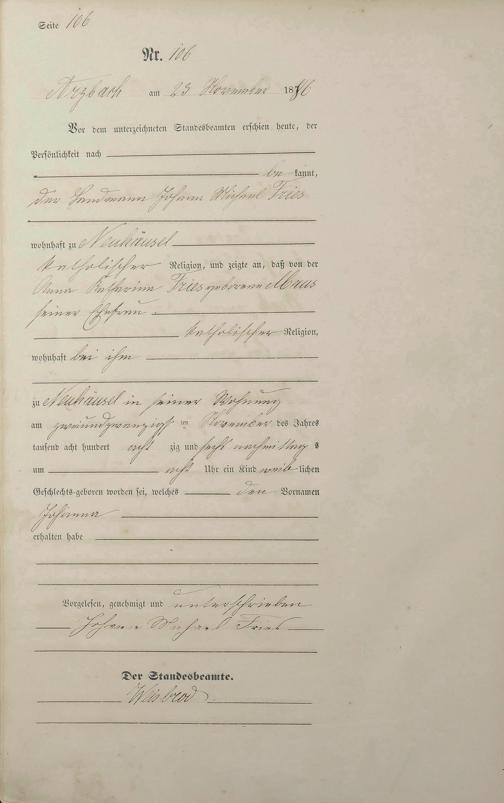 Seite 106
Nr. 106
Arzbach am 23 November 1886
Vor dem unterzeichneten Standesbeamten erschien heute, der
Persönlichkeit nach
be kannt,
der Landmann Johann Michael Fries
wohnhaft zu Neuhäusel
katholischer Religion, und zeigte an, daß von der
Anna Katharina Fries geborene Maus
seiner Ehefrau
katholischer Religion,
wohnhaft bei ihm
zu Neuhäusel in seiner Wohnung
am zweiundzwanzigst en November des Jahres
tausend acht hundert acht zig und sechs nachmittag s
um acht Uhr ein Kind weib lichen
Geschlechts geboren worden sei, welches den Vornamen
Johanna
erhalten habe
Vorgelesen, genehmigt und unterschrieben
Johann Michael Fries
Der Standesbeamte.
Weisbrod